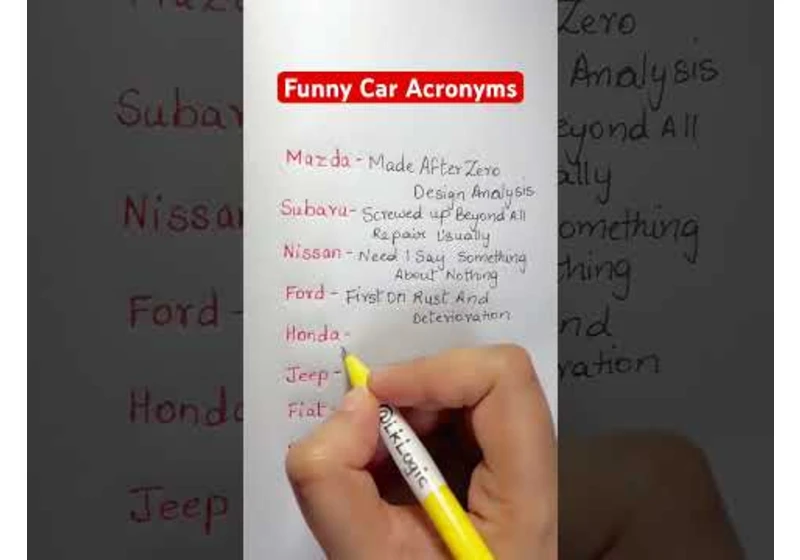 Funny Car Acronyms
Mazda - Made After Zero
Design Analysis
Subaru - Screwed up Beyond All
Repair Usually
Nissan - Need I Say Something
About Nothing
Ford - First On Rust And
Deterioration
Honda -
Jeep -
Fiat -
@LKLogic